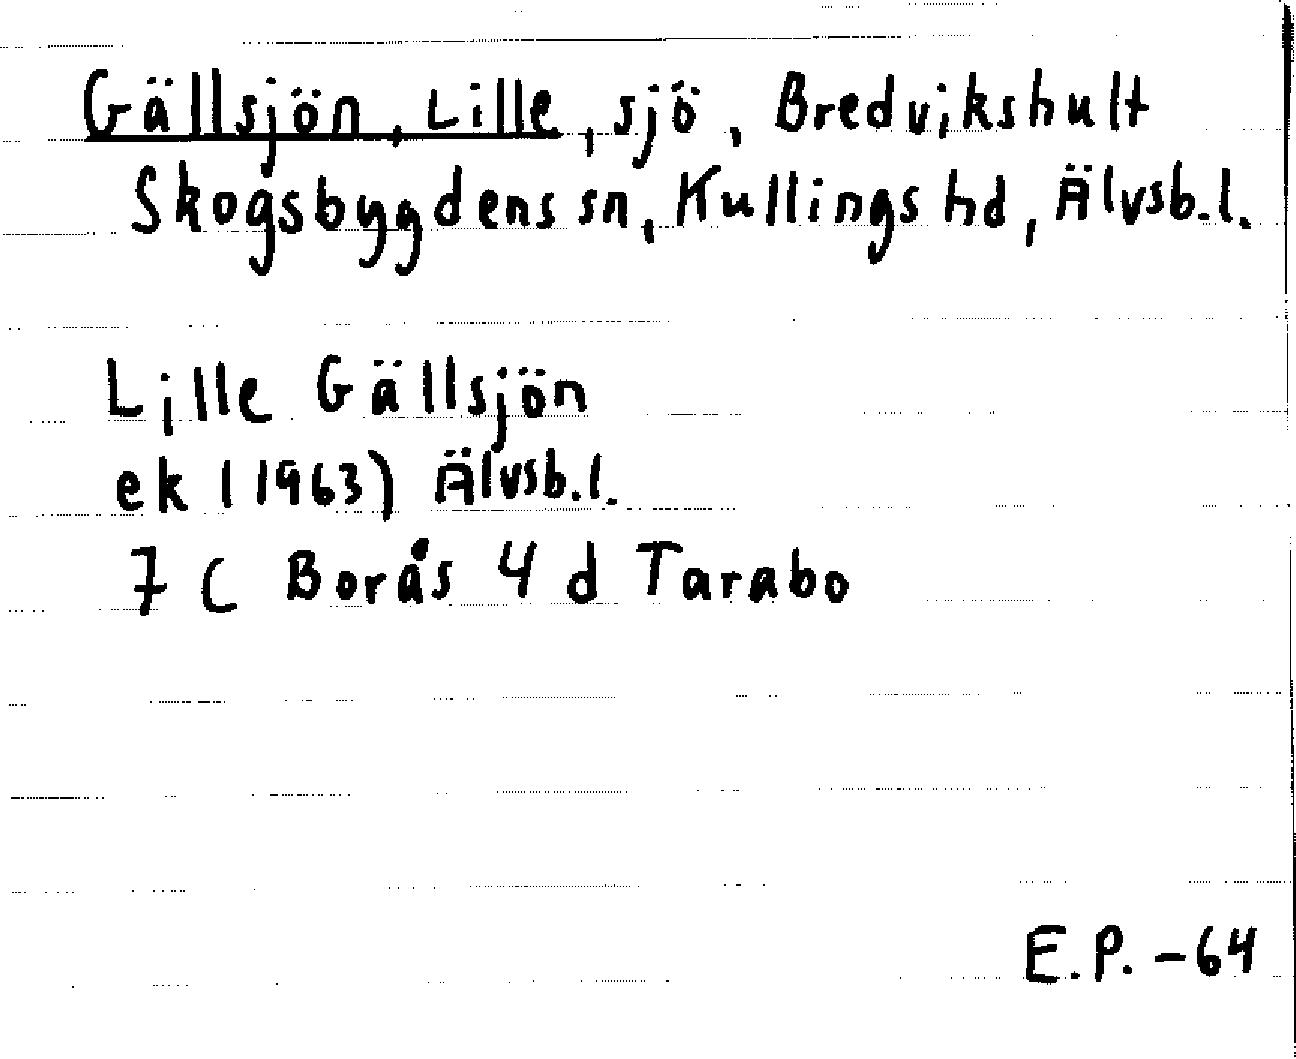 Gällsjön, Lille, sjö, Bredvikshult
Skogsbygdens sn, Kullings hd, Älvsb.l.
Lille Gällsjön
ek (1963) Älvsb.l.
7 C Borås 4 d Tarabo
E.P. -64